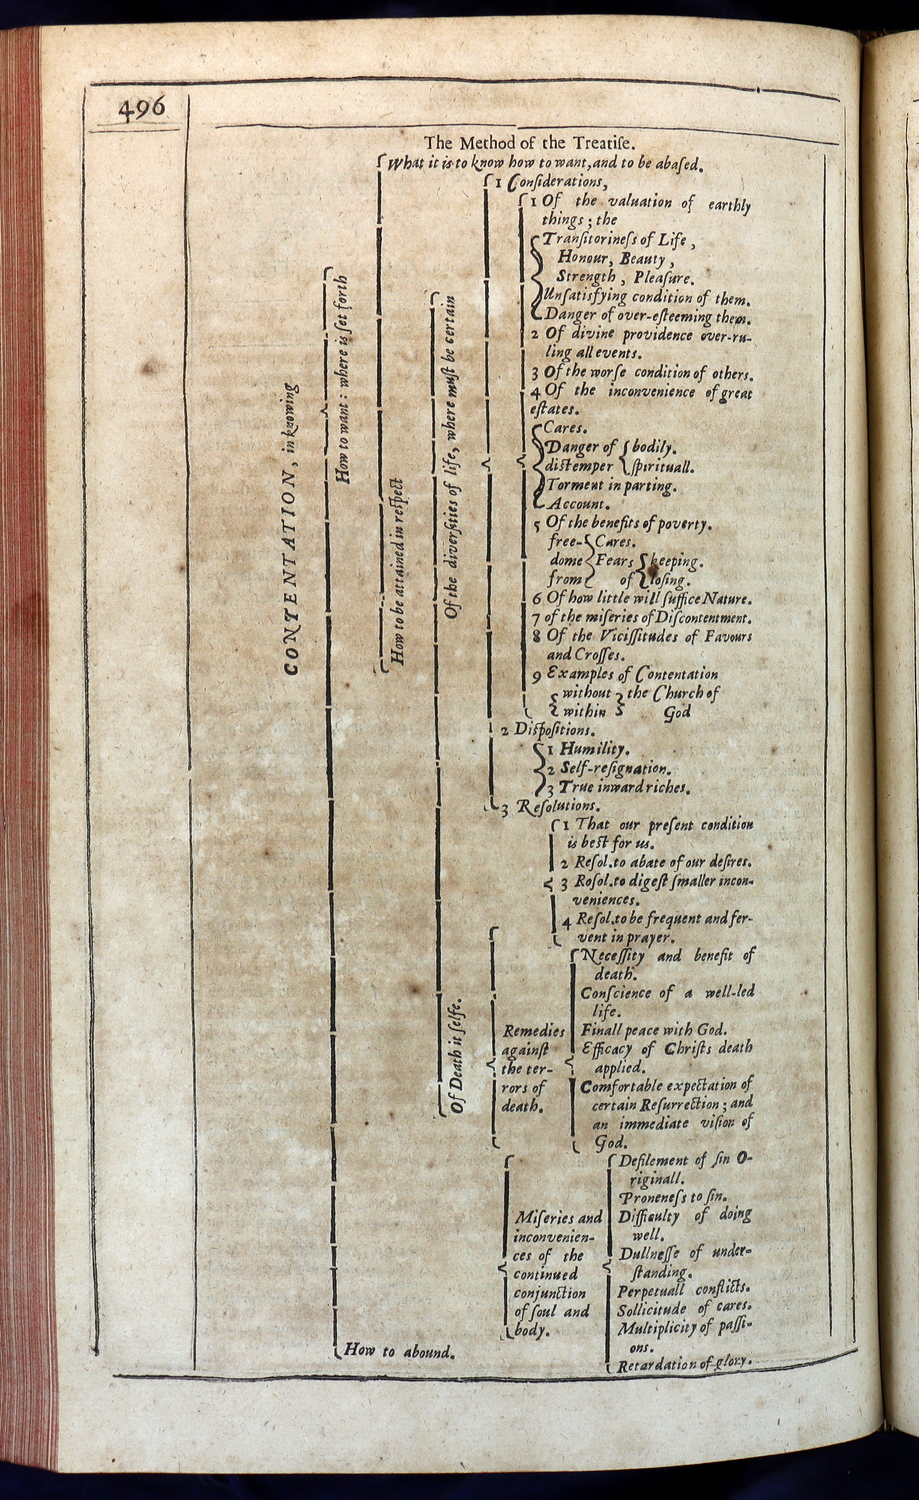 496
The Method of the Treatiſe.
CONTENTATION, in knowing
How to want: where is ſet forth
What it is to know how to want, and to be abaſed.
How to be attained in reſpect
Of the diverſities of life, where muſt be certain
1 Conſiderations,
1 Of the valuation of earthly
things; the
Tranſitorineſs of Life,
Honour, Beauty,
Strength, Pleaſure.
Unſatisfying condition of them.
Danger of over-eſteeming them.
2 Of divine providence over-ru-
ling all events.
3 Of the worſe condition of others.
4 Of the inconvenience of great
eſtates.
Cares.
Danger of { bodily.
diſtemper { ſpirituall.
Torment in parting.
Account.
5 Of the benefits of poverty.
free- { Cares.
dome { Fears { keeping.
from { of { loſing.
6 Of how little will ſuffice Nature.
7 of the miſeries of Diſcontentment.
8 Of the Viciſſitudes of Favours
and Croſſes.
9 Examples of Contentation
{ without } the Church of
{ within } God
2 Diſpoſitions.
1 Humility.
2 Self-reſignation.
3 True inward riches.
3 Reſolutions.
1 That our preſent condition
is beſt for us.
2 Reſol. to abate of our deſires.
3 Roſol. to digeſt ſmaller incon-
veniences.
4 Reſol. to be frequent and fer-
vent in prayer.
Of Death it ſelfe.
Remedies
againſt
the ter-
rors of
death.
Neceſſity and benefit of
death.
Conſcience of a well-led
life.
Finall peace with God.
Efficacy of Chriſts death
applied.
Comfortable expectation of
certain Reſurrection; and
an immediate viſion of
God.
Miſeries and
inconvenien-
ces of the
continued
conjunction
of ſoul and
body.
Defilement of ſin O-
riginall.
Proneneſs to ſin.
Difficulty of doing
well.
Dullneſſe of under-
ſtanding.
Perpetuall conflicts.
Sollicitude of cares.
Multiplicity of paſſi-
ons.
Retardation of glory.
How to abound.